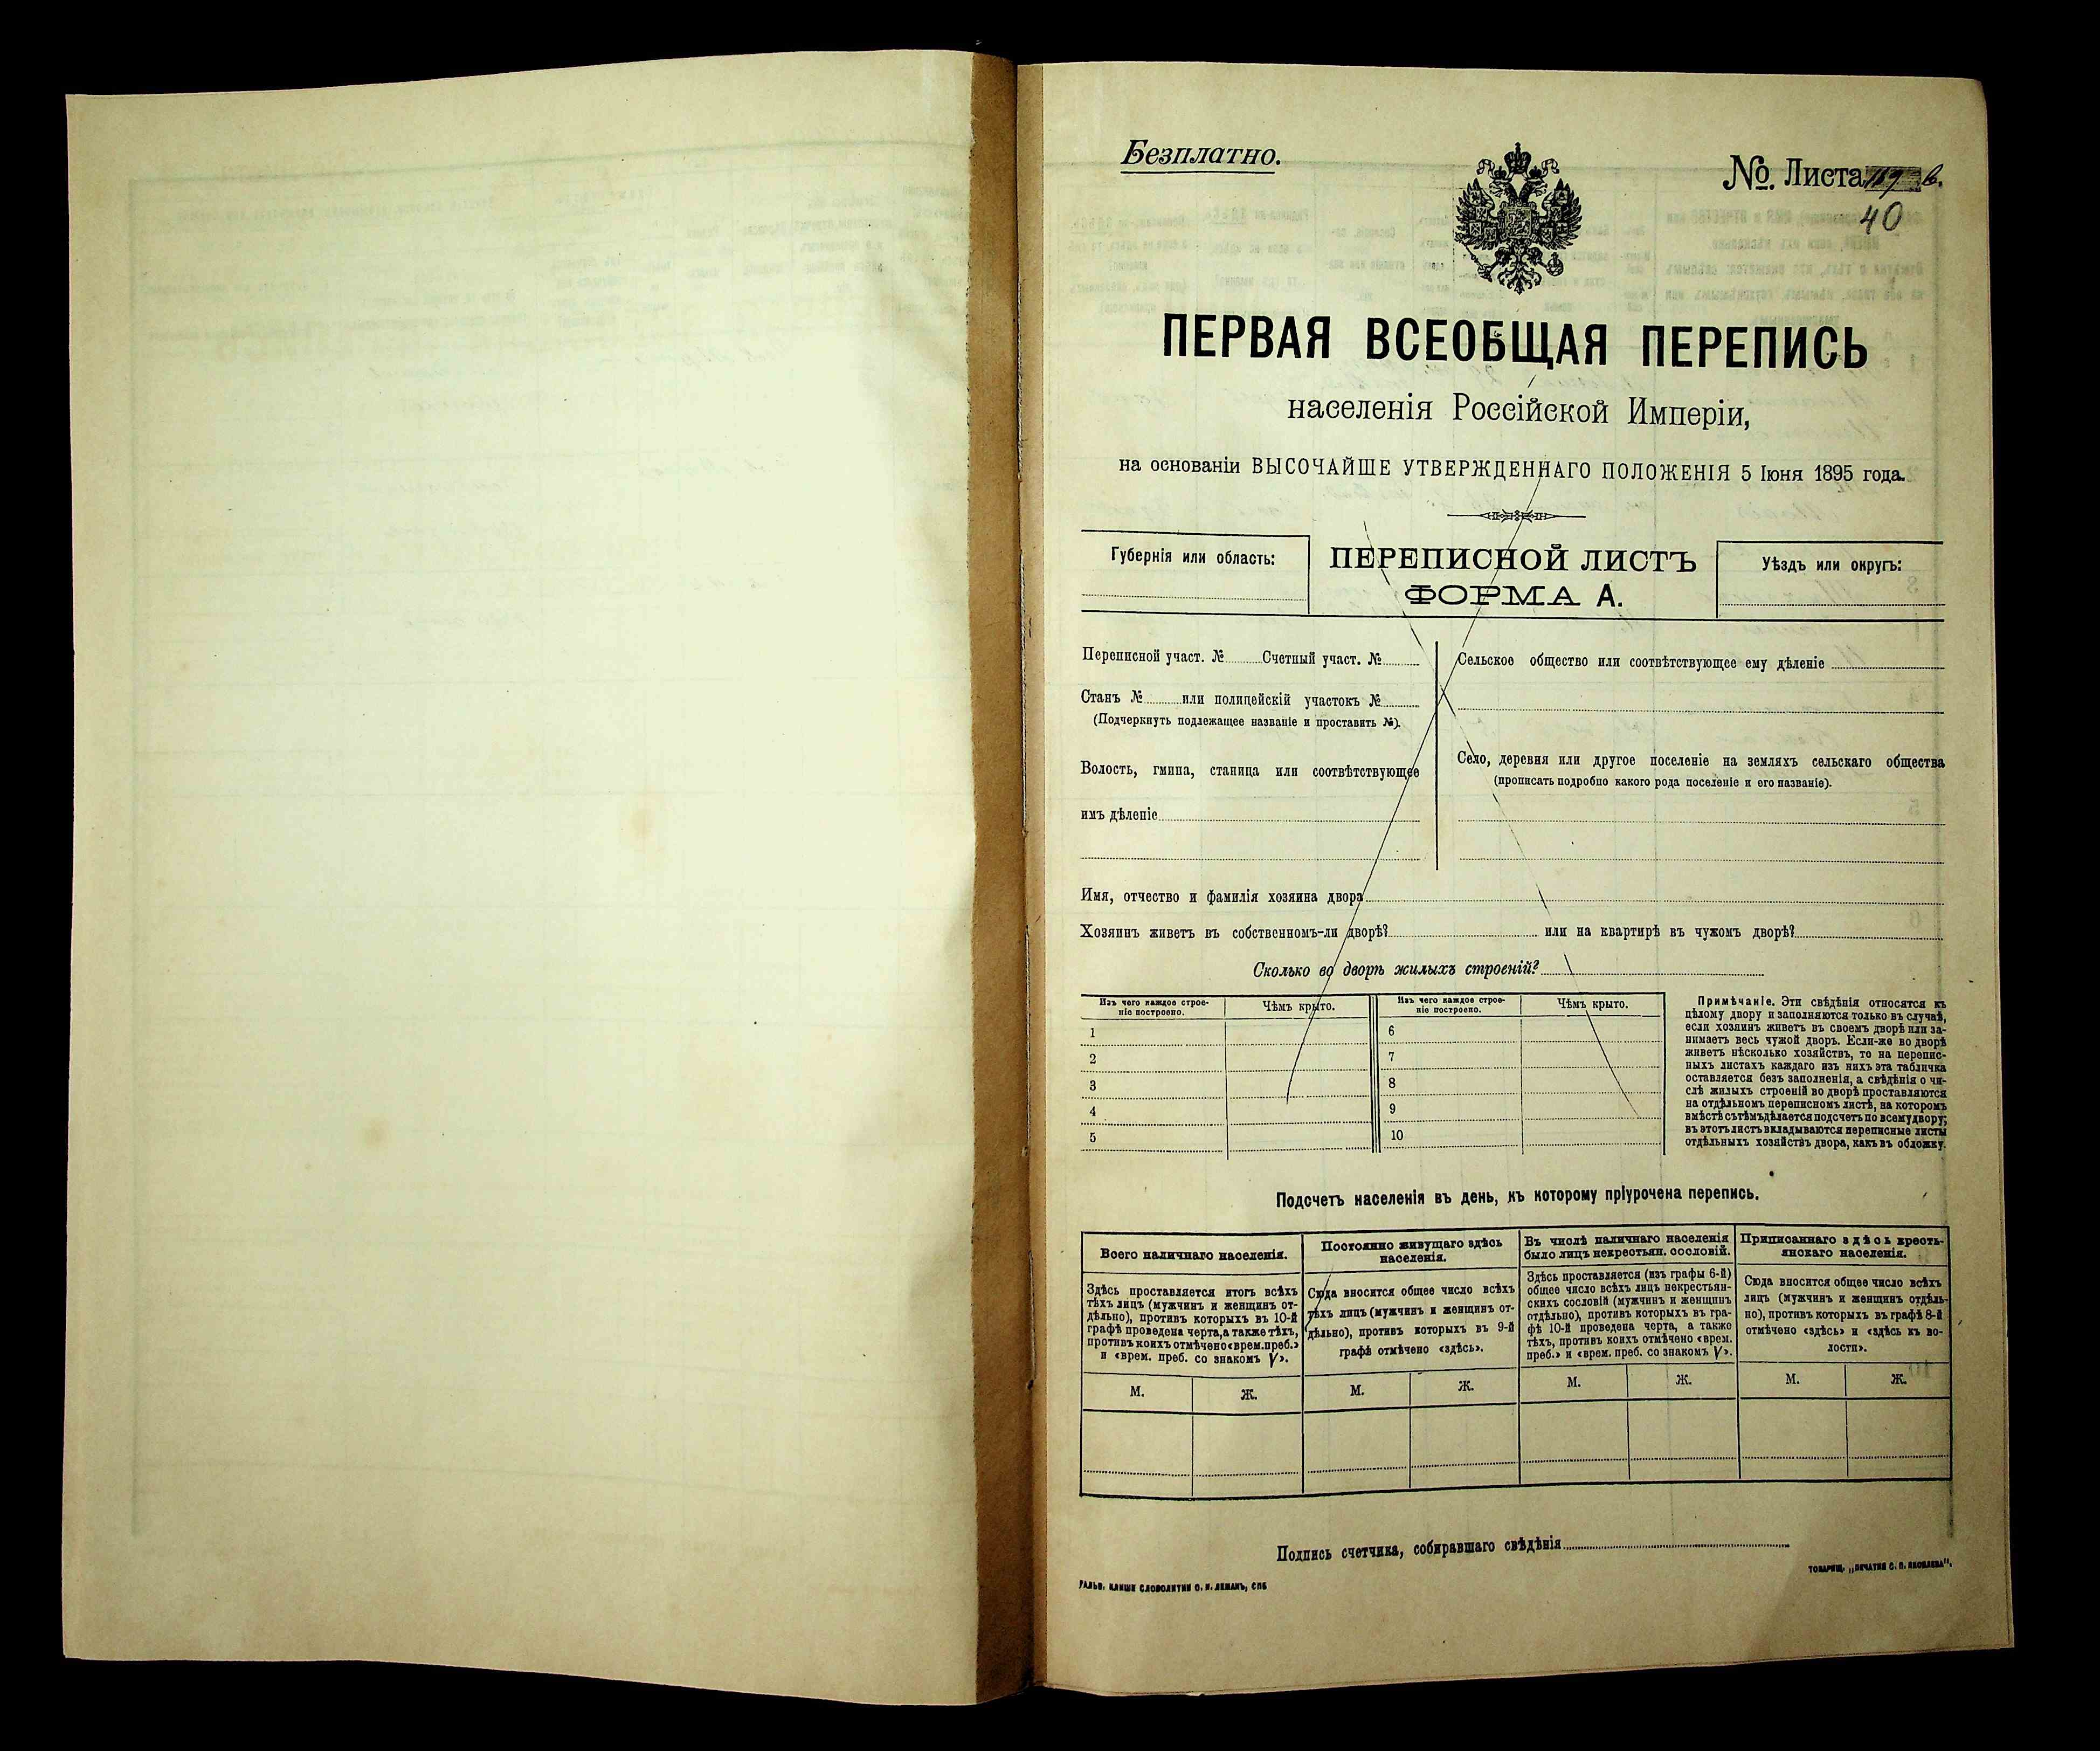 Безплатно.
№. Листа
40
ПЕРВАЯ ВСЕОБЩАЯ ПЕРЕПИСЬ
населенія Россійской Имперіи,
на основаніи ВЫСОЧАЙШЕ УТВЕРЖДЕННАГО ПОЛОЖЕНІЯ 5 Іюня 1895 года.
Губернія или область:
ПЕРЕПИСНОЙ ЛИСТЪ
ФОРМА А.
Уѣздъ или округъ:
Переписной участ. № Счетный участ. №
Станъ № или полицейскій участокъ №
(Подчеркнуть подлежащее названіе и проставить №).
Волость, гмина, станица или соотвѣтствующее
имъ дѣленіе
Сельское общество или соотвѣтствующее ему дѣленіе
Село, деревня или другое поселеніе на земляхъ сельскаго общества
(прописать подробно какого рода поселеніе и его названіе).
Имя, отчество и фамилія хозяина двора
Хозяинъ живетъ въ собственномъ-ли дворѣ? или на квартирѣ въ чужомъ дворѣ?
Сколько во дворѣ жилыхъ строеній?
Изъ чего каждое строе-
ніе построено.
Чѣмъ крыто.
1
2
3
4
5
Изъ чего каждое строе-
ніе построено.
Чѣмъ крыто.
6
7
8
9
10
Примѣчаніе. Эти свѣдѣнія относятся къ
цѣлому двору и заполняются только въ случаѣ,
если хозяинъ живетъ въ своемъ дворѣ или за-
нимаетъ весь чужой дворъ. Если-же во дворѣ
живетъ нѣсколько хозяйствъ, то на перепис-
ныхъ листахъ каждаго изъ нихъ эта табличка
оставляется безъ заполненія, а свѣдѣнія о чи-
слѣ жилыхъ строеній во дворѣ проставляются
на отдѣльномъ переписномъ листѣ, на которомъ
вмѣстѣ съ тѣмъ дѣлается подсчетъ по всему двору;
въ этотъ листъ вкладываются переписные листы
отдѣльныхъ хозяйствъ двора, какъ въ обложку.
Подсчетъ населенія въ день, къ которому пріурочена перепись.
Всего наличнаго населенія.
Здѣсь проставляется итогъ всѣхъ
тѣхъ лицъ (мужчинъ и женщинъ от-
дѣльно), противъ которыхъ въ 10-й
графѣ проведена черта, а также тѣхъ,
противъ коихъ отмѣчено «врем. преб.»
и «врем. преб. со знакомъ V».
М. Ж.
Постоянно живущаго здѣсь
населенія.
Сюда вносится общее число всѣхъ
тѣхъ лицъ (мужчинъ и женщинъ от-
дѣльно), противъ которыхъ въ 9-й
графѣ отмѣчено «здѣсь».
М. Ж.
Въ числѣ наличнаго населенія
было лицъ некрестьян. сословій.
Здѣсь проставляется (изъ графы 6-й)
общее число всѣхъ лицъ некрестьян-
скихъ сословій (мужчинъ и женщинъ
отдѣльно), противъ которыхъ въ гра-
фѣ 10-й проведена черта, а также
тѣхъ, противъ коихъ отмѣчено «врем.
преб.» и «врем. преб. со знакомъ V».
М. Ж.
Приписаннаго здѣсь кресть-
янскаго населенія.
Сюда вносится общее число всѣхъ
лицъ (мужчинъ и женщинъ отдѣль-
но), противъ которыхъ въ графѣ 8-й
отмѣчено «здѣсь» и «здѣсь къ во-
лости».
М. Ж.
Подпись счетчика, собиравшаго свѣдѣнія
ГАЛЬВ. КЛИШЕ СЛОВОЛИТНИ О. И. ЛЕМАНЪ, СПБ
ТОВАРИЩ. „ПЕЧАТНЯ С. П. ЯКОВЛЕВА".